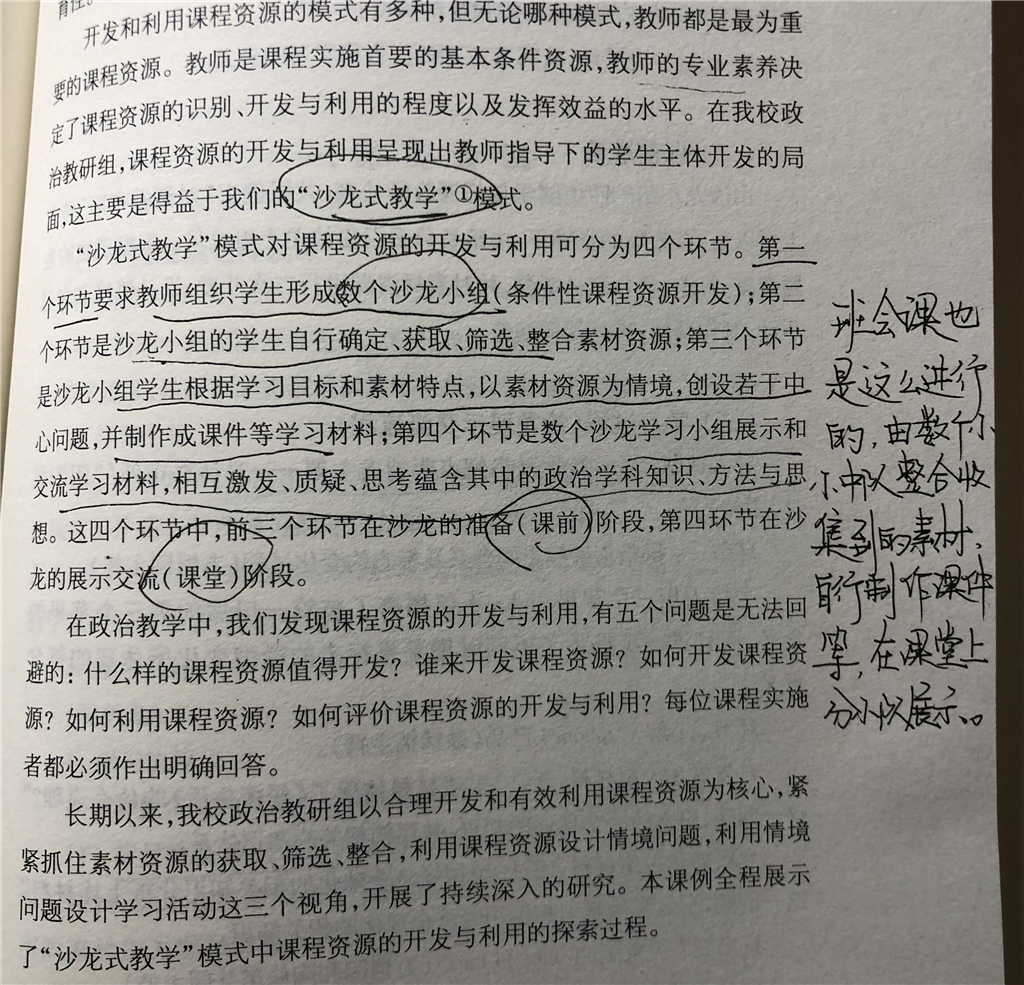 育性。
开发和利用课程资源的模式有多种,但无论哪种模式,教师都是最为重
要的课程资源。教师是课程实施首要的基本条件资源,教师的专业素养决
定了课程资源的识别、开发与利用的程度以及发挥效益的水平。在我校政
治教研组,课程资源的开发与利用呈现出教师指导下的学生主体开发的局
面,这主要是得益于我们的“沙龙式教学”①模式。
“沙龙式教学”模式对课程资源的开发与利用可分为四个环节。第一
个环节要求教师组织学生形成数个沙龙小组(条件性课程资源开发);第二
个环节是沙龙小组的学生自行确定、获取、筛选、整合素材资源;第三个环节
是沙龙小组学生根据学习目标和素材特点,以素材资源为情境,创设若干中
心问题,并制作成课件等学习材料;第四个环节是数个沙龙学习小组展示和
交流学习材料,相互激发、质疑、思考蕴含其中的政治学科知识、方法与思
想。这四个环节中,前三个环节在沙龙的准备(课前)阶段,第四环节在沙
龙的展示交流(课堂)阶段。
在政治教学中,我们发现课程资源的开发与利用,有五个问题是无法回
避的:什么样的课程资源值得开发?谁来开发课程资源?如何开发课程资
源?如何利用课程资源?如何评价课程资源的开发与利用?每位课程实施
者都必须作出明确回答。
长期以来,我校政治教研组以合理开发和有效利用课程资源为核心,紧
紧抓住素材资源的获取、筛选、整合,利用课程资源设计情境问题,利用情境
问题设计学习活动这三个视角,开展了持续深入的研究。本课例全程展示
了“沙龙式教学”模式中课程资源的开发与利用的探索过程。
班会课也
是这么进行
的,由数个小
小中队整合收
集到的素材,
自行制作课件
等,在课堂上
分小队展示。